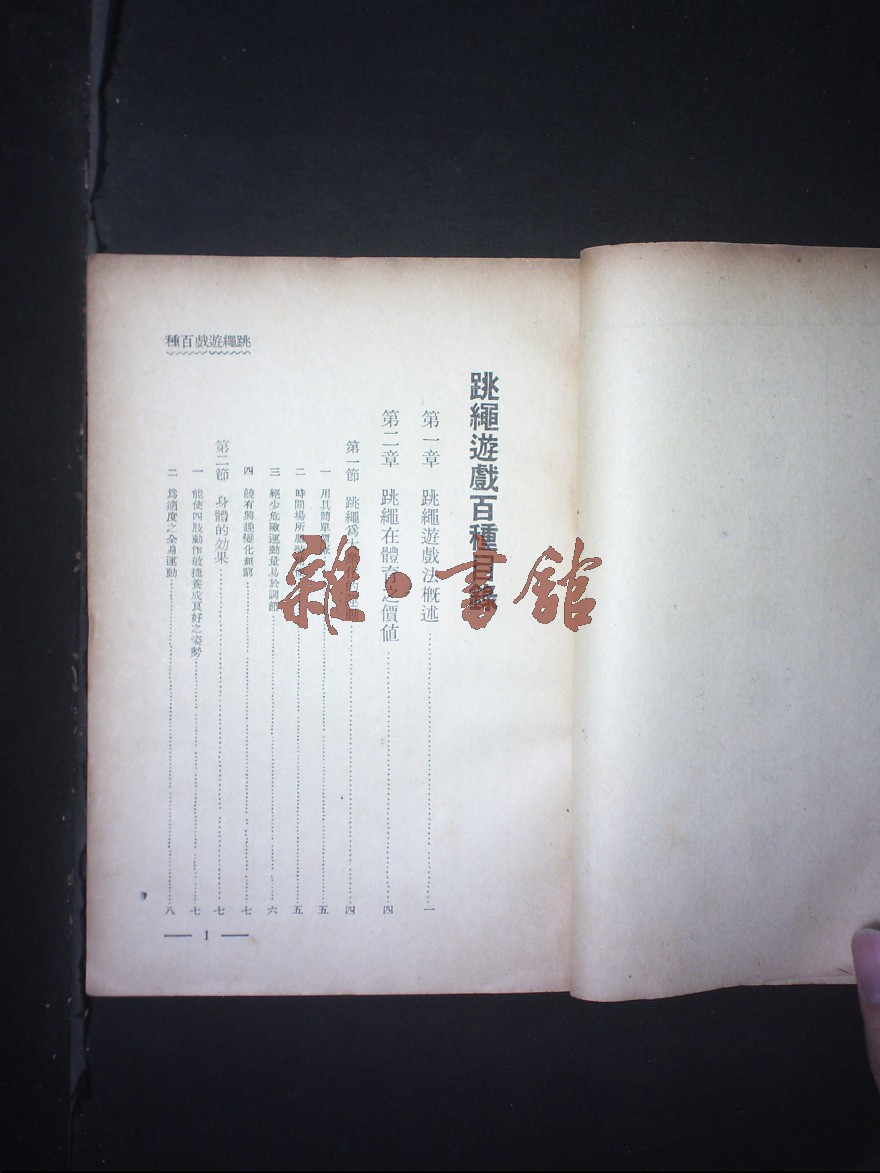 跳繩遊戲百種
跳繩遊戲百種目錄
第一章 跳繩遊戲法概述……一
第二章 跳繩在體育之價値……四
第一節 跳繩爲大……的運動……四
一 用具簡單價廉……五
二 時間場所……五
三 絕少危險運動量易於調節……六
四 饒有興趣變化無窮……七
第二節 身體的効果……七
一 能使四肢動作敏捷養成良好之姿勢……七
二 爲適度之全身運動……八
— 1 —
雜·書館